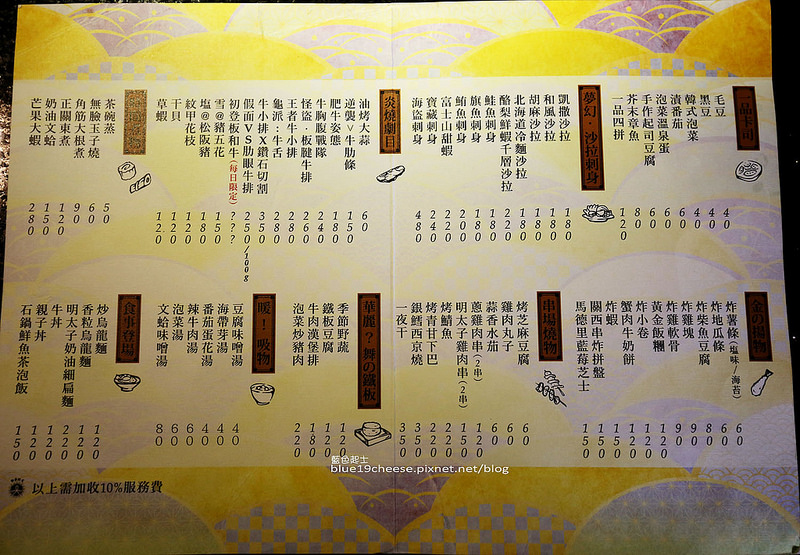 一品卡司
毛豆 40
黑豆 40
韓式泡菜 40
漬番茄 60
泡菜溫泉蛋 60
手作起司豆腐 60
芥末章魚 80
一品四拼 120
夢幻 沙拉刺身
凱撒沙拉 180
和風沙拉 180
胡麻沙拉 180
北海道冷麵沙拉
酪梨鮮蝦千層沙拉 220
鮭魚刺身 180
旗魚刺身 180
鮪魚刺身 200
富士山甜蝦 220
寶藏刺身 240
海盜刺身 480
炎燒劇目
油烤大蒜 60
逆襲V牛肋條 150
肥牛姿態 180
牛胸腹戰隊 240
怪盜.板腱牛排 260
王者牛小排 280
龜派:牛舌 280
牛小排X鑽石切割 350
假面VS肋眼牛排 250/100g
初登板和牛(每日限定) ???
雪@豬五花 150
塩@松阪豬 180
紋甲花枝 120
干貝 120
草蝦 120
茶碗蒸 50
無臉玉子燒 60
角筋大根煮 90
正關東煮 120
奶油文蛤 150
芒果大蝦 280
金の揚物
炸薯條(塩味/海苔) 60
炸地瓜條 60
炸柴魚豆腐 80
炸雞塊 90
炸雞軟骨 90
黃金飯糰 120
炸小卷 120
蟹肉牛奶餅 110
炸蝦 150
關西串炸拼盤 150
馬德里藍莓芝士 115
串場燒物
烤芝麻豆腐 60
雞肉丸子 60
蒜香水茄 60
蔥雞肉串(2串) 150
明太子雞肉串(2串) 150
烤鯖魚 120
烤青甘下巴 250
銀鱈西京燒 320
一夜干 350
華麗?舞の鐵板
季節野蔬 120
鐵板豆腐 120
牛肉漢堡排 180
泡菜炒豬肉 220
暖!吸物
豆腐味噌湯 40
海帶芽湯 40
番茄蛋花湯 40
辣牛肉湯 60
泡菜湯 60
文蛤味噌湯 80
食事登場
炒烏龍麵 120
香粒烏龍麵 120
明太子奶油細扁麵 220
牛丼 120
親子丼 120
石鍋鮮魚茶泡飯 150
藍色起士
blue19cheese.pixnet.net/blog
以上需加收10%服務費